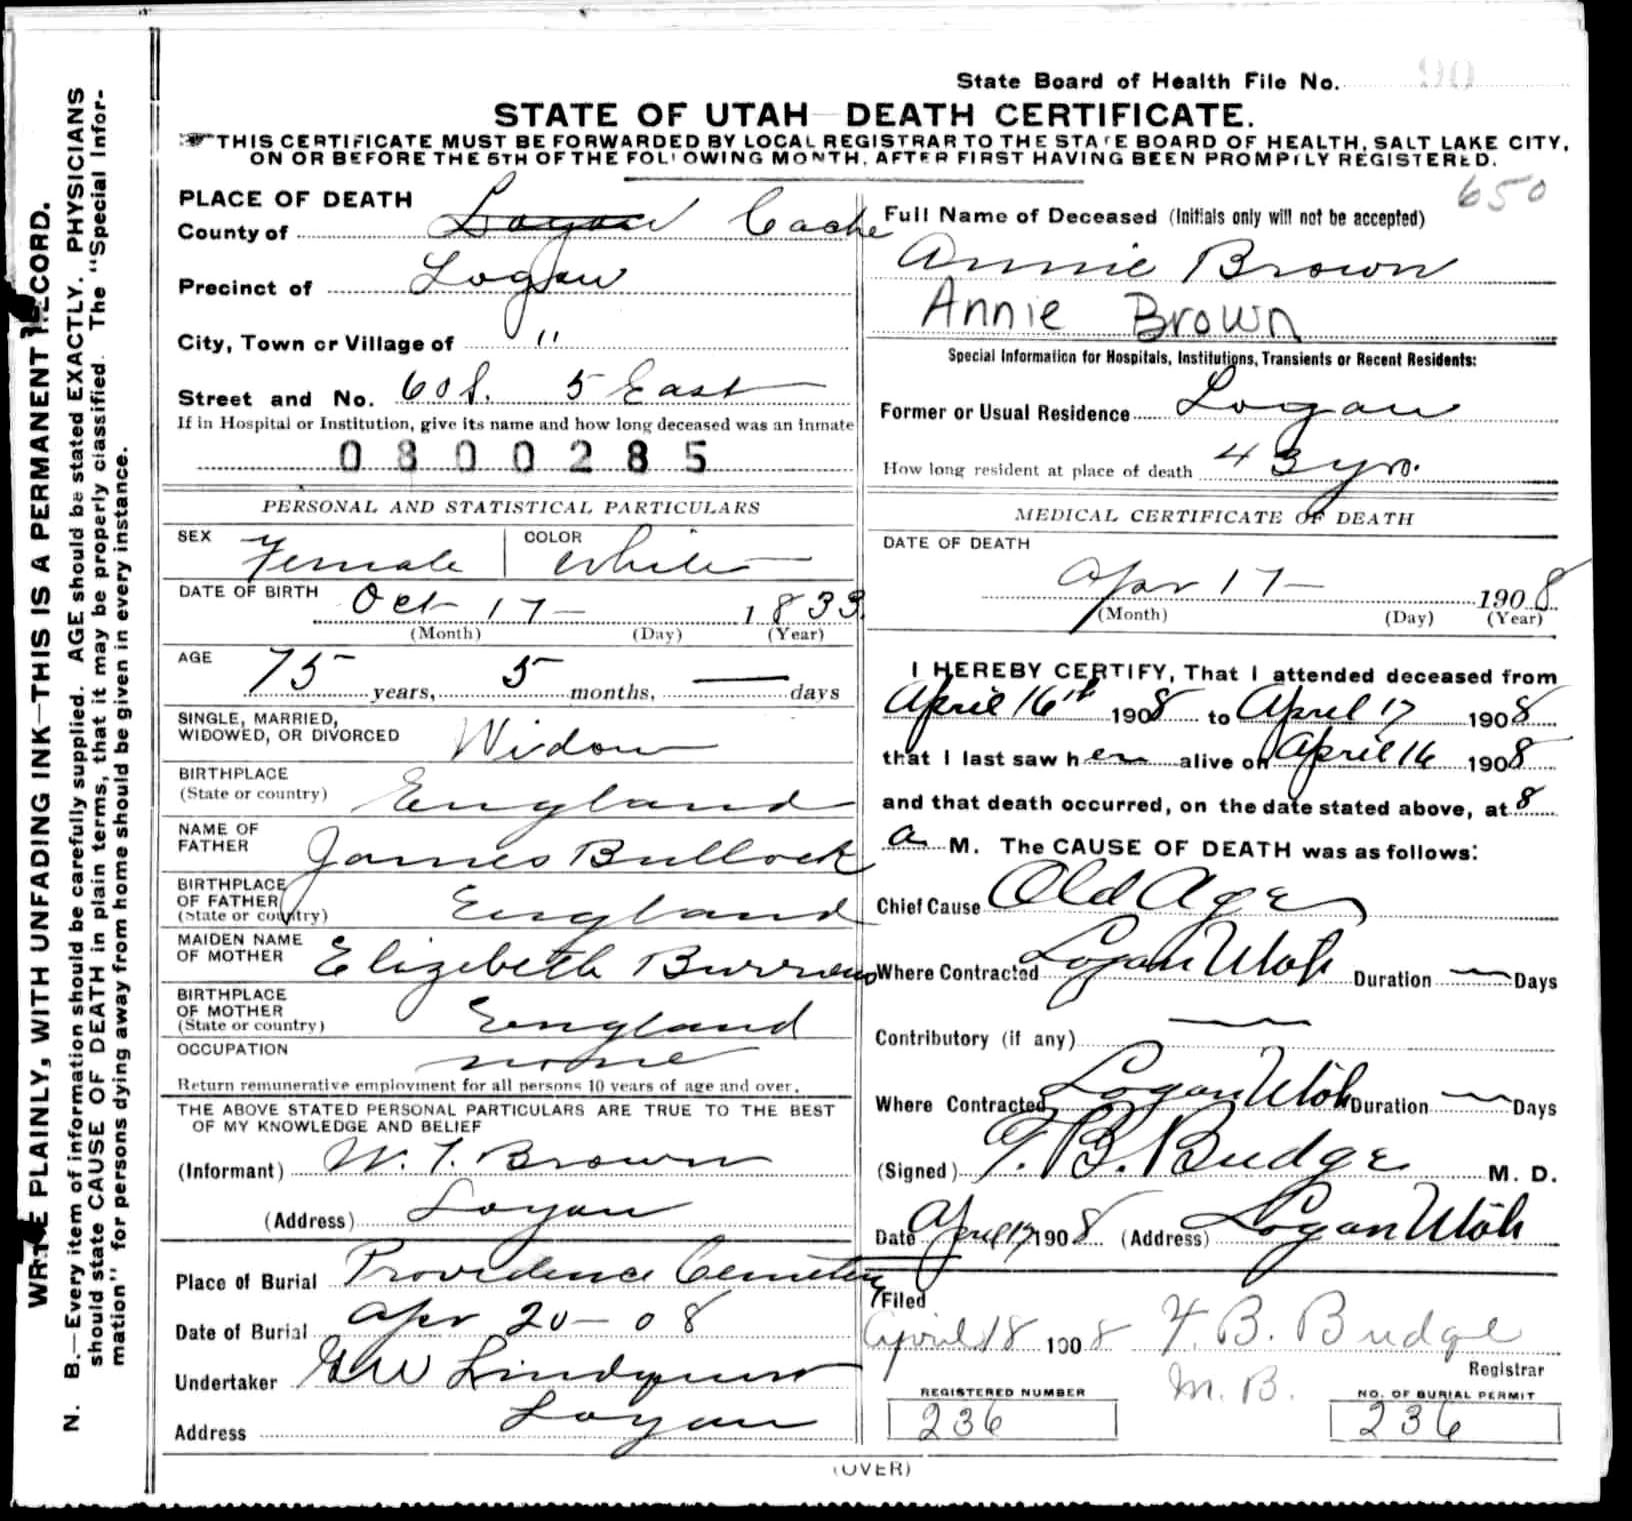 State Board of Health File No. 90
STATE OF UTAH DEATH CERTIFICATE.
THIS CERTIFICATE MUST BE FORWARDED BY LOCAL REGISTRAR TO THE STATE BOARD OF HEALTH, SALT LAKE CITY,
ON OR BEFORE THE 5TH OF THE FOLLOWING MONTH, AFTER FIRST HAVING BEEN PROMPTLY REGISTERED.
650
WRITE PLAINLY, WITH UNFADING INK—THIS IS A PERMANENT RECORD.
N. B.—Every item of information should be carefully supplied. AGE should be stated EXACTLY. PHYSICIANS
should state CAUSE OF DEATH in plain terms, that it may be properly classified. The "Special Infor-
mation" for persons dying away from home should be given in every instance.
PLACE OF DEATH
County of Logan Cache
Precinct of Logan
City, Town or Village of "
Street and No. 60 S. 5 East
If in Hospital or Institution, give its name and how long deceased was an inmate
0800285
PERSONAL AND STATISTICAL PARTICULARS
SEX Female COLOR White
DATE OF BIRTH Oct 17 — 1833.
(Month) (Day) (Year)
AGE 75 years, 5 months, — days
SINGLE, MARRIED,
WIDOWED, OR DIVORCED Widow
BIRTHPLACE
(State or country) England
NAME OF
FATHER James Bullock
BIRTHPLACE
OF FATHER
(State or country) England
MAIDEN NAME
OF MOTHER Elizebeth
BIRTHPLACE
OF MOTHER
(State or country) England
OCCUPATION none
Return remunerative employment for all persons 10 years of age and over.
THE ABOVE STATED PERSONAL PARTICULARS ARE TRUE TO THE BEST
OF MY KNOWLEDGE AND BELIEF
(Informant) W. T. Brown
(Address) Logan
Place of Burial Providence Cemetery
Date of Burial Apr 20 — 08
Undertaker Lindquist
Address Logan
Full Name of Deceased (Initials only will not be accepted)
Annie Brown
Annie Brown
Special Information for Hospitals, Institutions, Transients or Recent Residents:
Former or Usual Residence Logan
How long resident at place of death 43 yrs.
MEDICAL CERTIFICATE OF DEATH
DATE OF DEATH
Apr 17 — 1908
(Month) (Day) (Year)
I HEREBY CERTIFY, That I attended deceased from
April 16th 1908 to April 17 1908
that I last saw her alive on April 16 1908
and that death occurred, on the date stated above, at 8
a M. The CAUSE OF DEATH was as follows:
Chief Cause Old Age
Where Contracted Logan Utah Duration — Days
Contributory (if any) —
Where Contracted Logan Utah Duration — Days
(Signed) T. B. Budge M. D.
Date April 17 1908 (Address) Logan Utah
Filed
April 18 1908 T. B. Budge
Registrar
M. B.
REGISTERED NUMBER
236
NO. OF BURIAL PERMIT
236
(OVER)